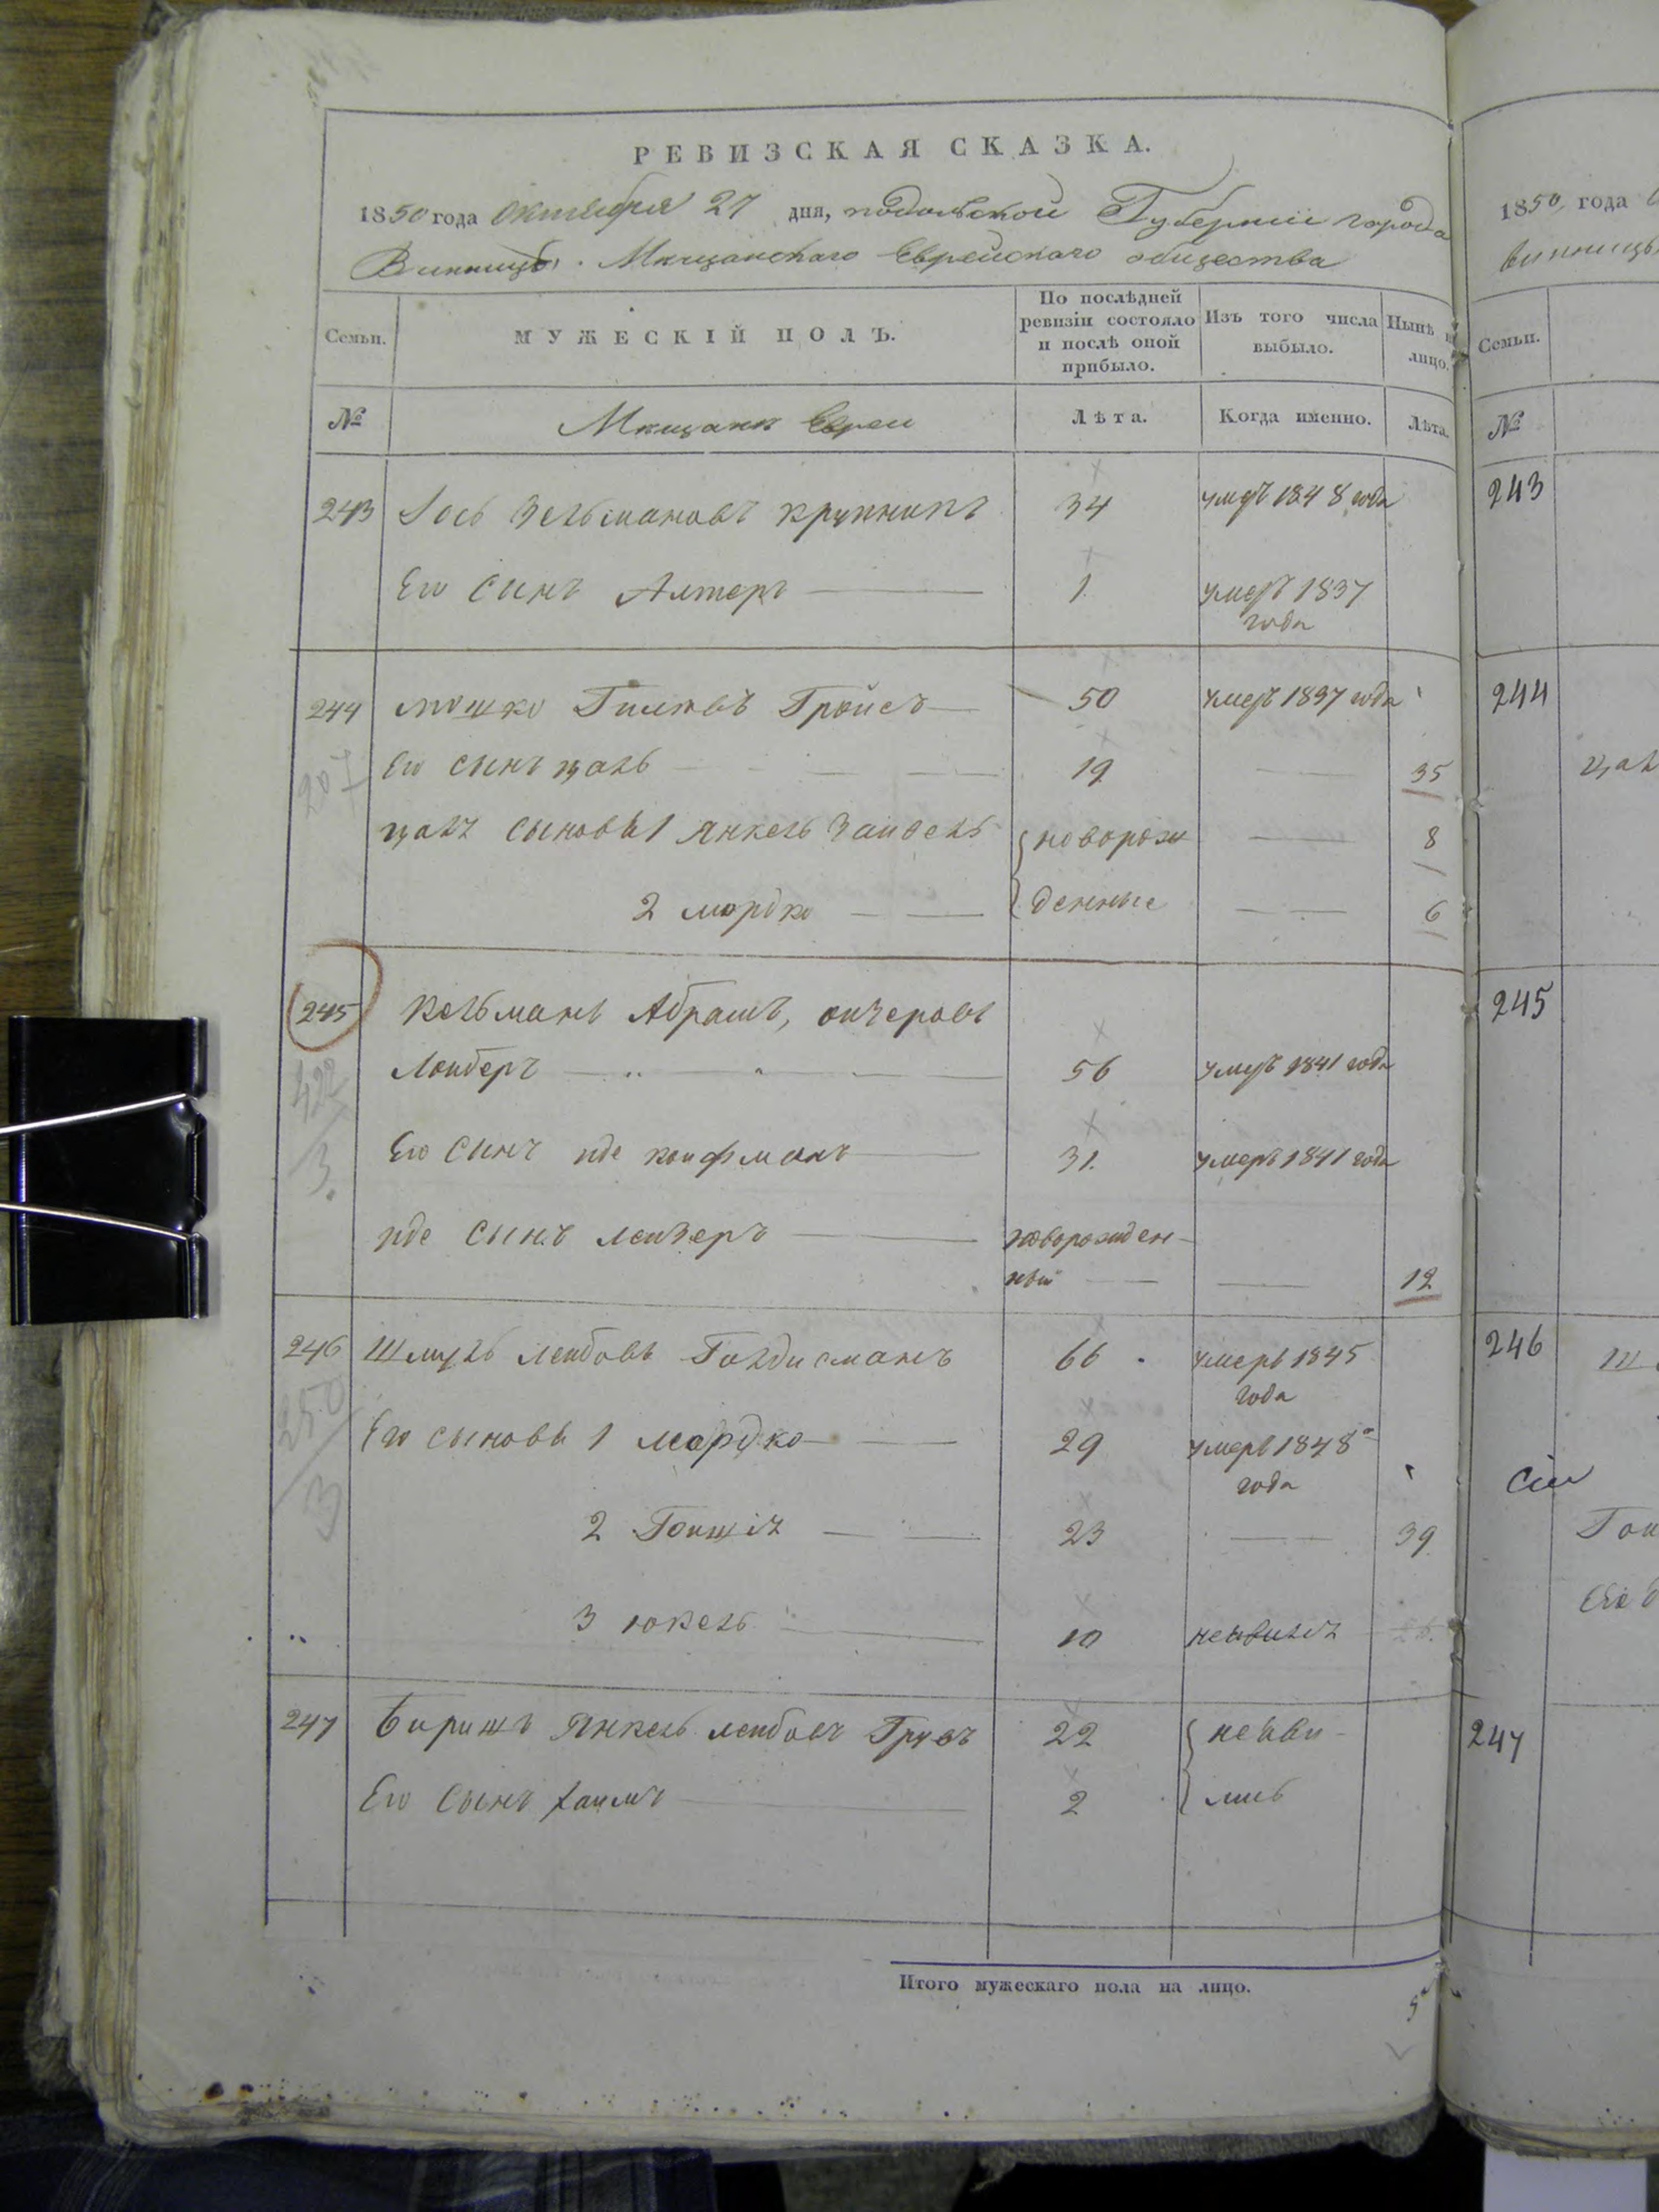 РЕВИЗСКАЯ СКАЗКА.
1850 года Октября 27 дня, подольской Губернии города
Винницы. Мещанскаго Еврейскаго общества
Семьи. МУЖЕСКІЙ ПОЛЪ. По послѣдней ревизіи состояло и послѣ оной прибыло. Изъ того числа выбыло. Нынѣ на лицо.
№ Мещане Евреи Лѣта. Когда именно. Лѣта.
243 Іось Зельмановъ крупникъ 34 умеръ 1848 года
Его сынъ Алтеръ 1 умеръ 1837 года
244 мошко Гройсъ 50 умеръ 1837 года
207
Его сынъ цаль 19 35
цаля сыновья 1 янкель Зайдель новорож 8
2 мордко денные 6
245 Кельманъ Абрамъ,
422
3.
Лойберъ 56 умеръ 1841 года
Его сынъ иде койфманъ 31. умеръ 1841 года
иде сынъ лейзеръ новорожден-
ный 12
246 Шмуль лейбовъ Гольдисманъ 66 умеръ 1845
года
250
3
Его сыновья 1 мордко 29 умеръ 1848
года
2 Гоишія 23 39
3 юкель 10 неявился
247 Беришъ Янкель лейбовъ 22 неяви-
Его сынъ хаимъ 2 лись
Итого мужескаго пола на лицо. 5
1850 года
винницы
Семьи.
№
243
244
цал
245
246 Ш
Гои
Его
247